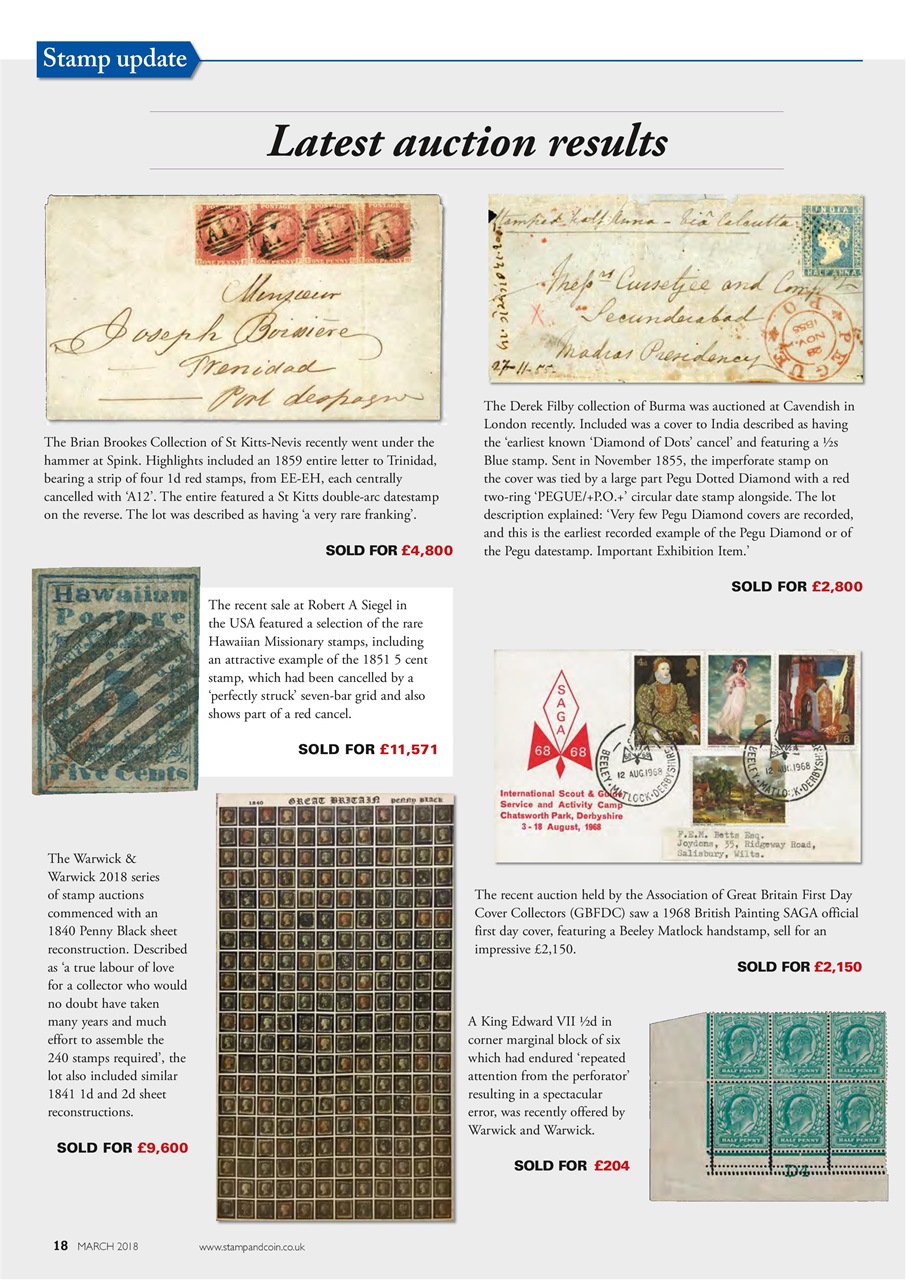 Stamp update
Latest auction results
A12
ONE PENNY
Monsieur
Joseph Boissière
Trenidad
Port despagne
The Brian Brookes Collection of St Kitts-Nevis recently went under the
hammer at Spink. Highlights included an 1859 entire letter to Trinidad,
bearing a strip of four 1d red stamps, from EE-EH, each centrally
cancelled with ‘A12’. The entire featured a St Kitts double-arc datestamp
on the reverse. The lot was described as having ‘a very rare franking’.
SOLD FOR £4,800
Stamped half Anna - Viâ Calcutta
INDIA
HALF ANNA
Messrs Cursetjee and Comp
Secunderabad
Madras Presidency
27-11-55
PEGUE
P.O
28
NOV.
1855
The Derek Filby collection of Burma was auctioned at Cavendish in
London recently. Included was a cover to India described as having
the ‘earliest known ‘Diamond of Dots’ cancel’ and featuring a ½s
Blue stamp. Sent in November 1855, the imperforate stamp on
the cover was tied by a large part Pegu Dotted Diamond with a red
two-ring ‘PEGUE/+P.O.+’ circular date stamp alongside. The lot
description explained: ‘Very few Pegu Diamond covers are recorded,
and this is the earliest recorded example of the Pegu Diamond or of
the Pegu datestamp. Important Exhibition Item.’
SOLD FOR £2,800
Hawaiian
Postage
5
Five Cents
The recent sale at Robert A Siegel in
the USA featured a selection of the rare
Hawaiian Missionary stamps, including
an attractive example of the 1851 5 cent
stamp, which had been cancelled by a
‘perfectly struck’ seven-bar grid and also
shows part of a red cancel.
SOLD FOR £11,571
SAGA
68 68
4d
1/6
BEELEY·MATLOCK·DERBYSHIRE
12 AUG.1968
BEELEY·MATLOCK·DERBYSHIRE
12 AUG.1968
International Scout & Guide
Service and Activity Camp
Chatsworth Park, Derbyshire
3 - 18 August, 1968
F.E.M. Betts Esq.
Joydons, 35, Ridgeway Road,
Salisbury, Wilts.
The recent auction held by the Association of Great Britain First Day
Cover Collectors (GBFDC) saw a 1968 British Painting SAGA official
first day cover, featuring a Beeley Matlock handstamp, sell for an
impressive £2,150.
SOLD FOR £2,150
The Warwick &
Warwick 2018 series
of stamp auctions
commenced with an
1840 Penny Black sheet
reconstruction. Described
as ‘a true labour of love
for a collector who would
no doubt have taken
many years and much
effort to assemble the
240 stamps required’, the
lot also included similar
1841 1d and 2d sheet
reconstructions.
SOLD FOR £9,600
1840 GREAT BRITAIN PENNY BLACK
A King Edward VII ½d in
corner marginal block of six
which had endured ‘repeated
attention from the perforator’
resulting in a spectacular
error, was recently offered by
Warwick and Warwick.
SOLD FOR £204
HALF PENNY HALF PENNY HALF PENNY
HALF PENNY HALF PENNY HALF PENNY
D4
18 MARCH 2018 www.stampandcoin.co.uk